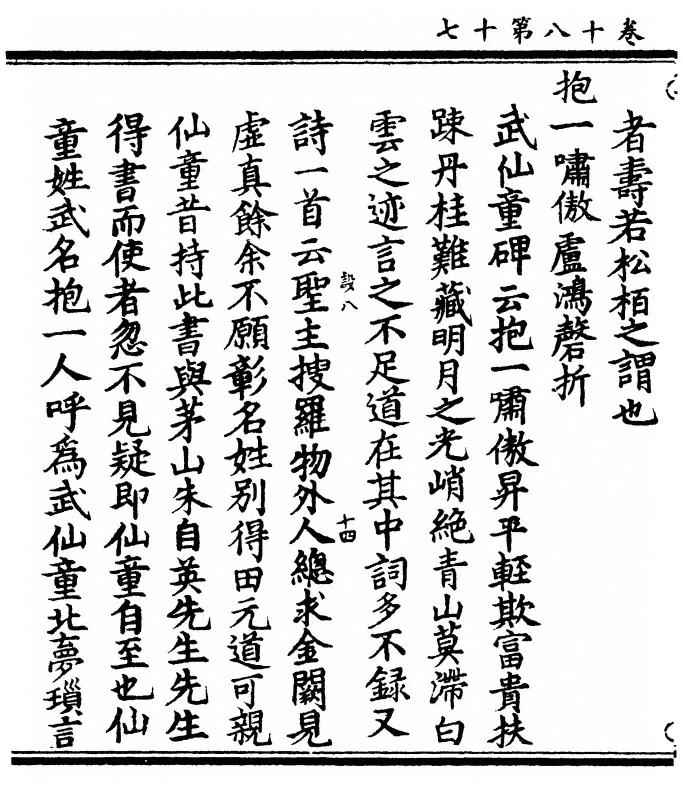 卷十八第十七
者壽若松栢之謂也
抱一嘯傲盧鴻磬折
武仙童碑云抱一嘯傲昇平輕欺富貴扶
踈丹桂難藏明月之光峭絶青山莫滯白
雲之迹言之不足道在其中詞多不録又
設八
十四
詩一首云聖主搜羅物外人總求金闕見
虛真餘余不願彰名姓别得田元道可親
仙童昔持此書與茅山朱自英先生先生
得書而使者忽不見疑即仙童自至也仙
童姓武名抱一人呼爲武仙童北夢瑣言